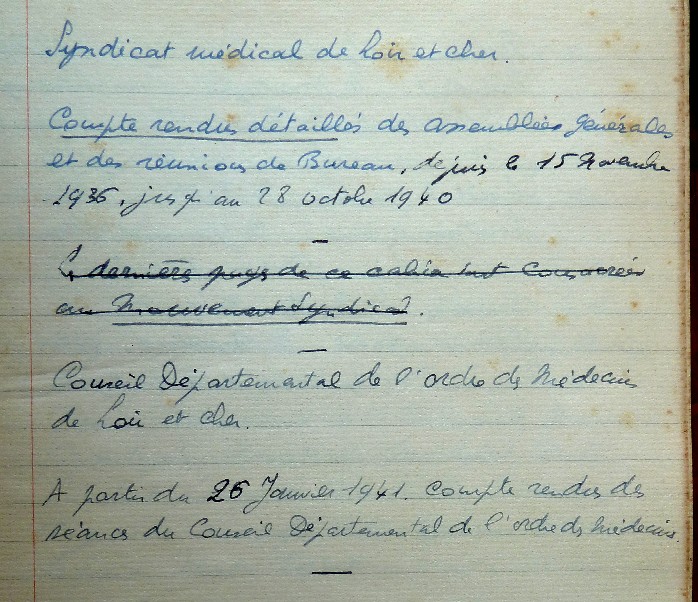 Syndicat médical de Loir et cher.
Compte rendus détaillés des assemblées générales
et des réunions de Bureau, depuis le 15 Novembre
1936, jusqu'au 28 octobre 1940
Les dernières pages de ce cahier sont consacrées
au Mouvement Syndical.
Conseil Départemental de l'ordre des Médecins
de Loir et cher.
A partir du 26 Janvier 1941. compte rendus des
séances du Conseil Départemental de l'ordre des Médecins.